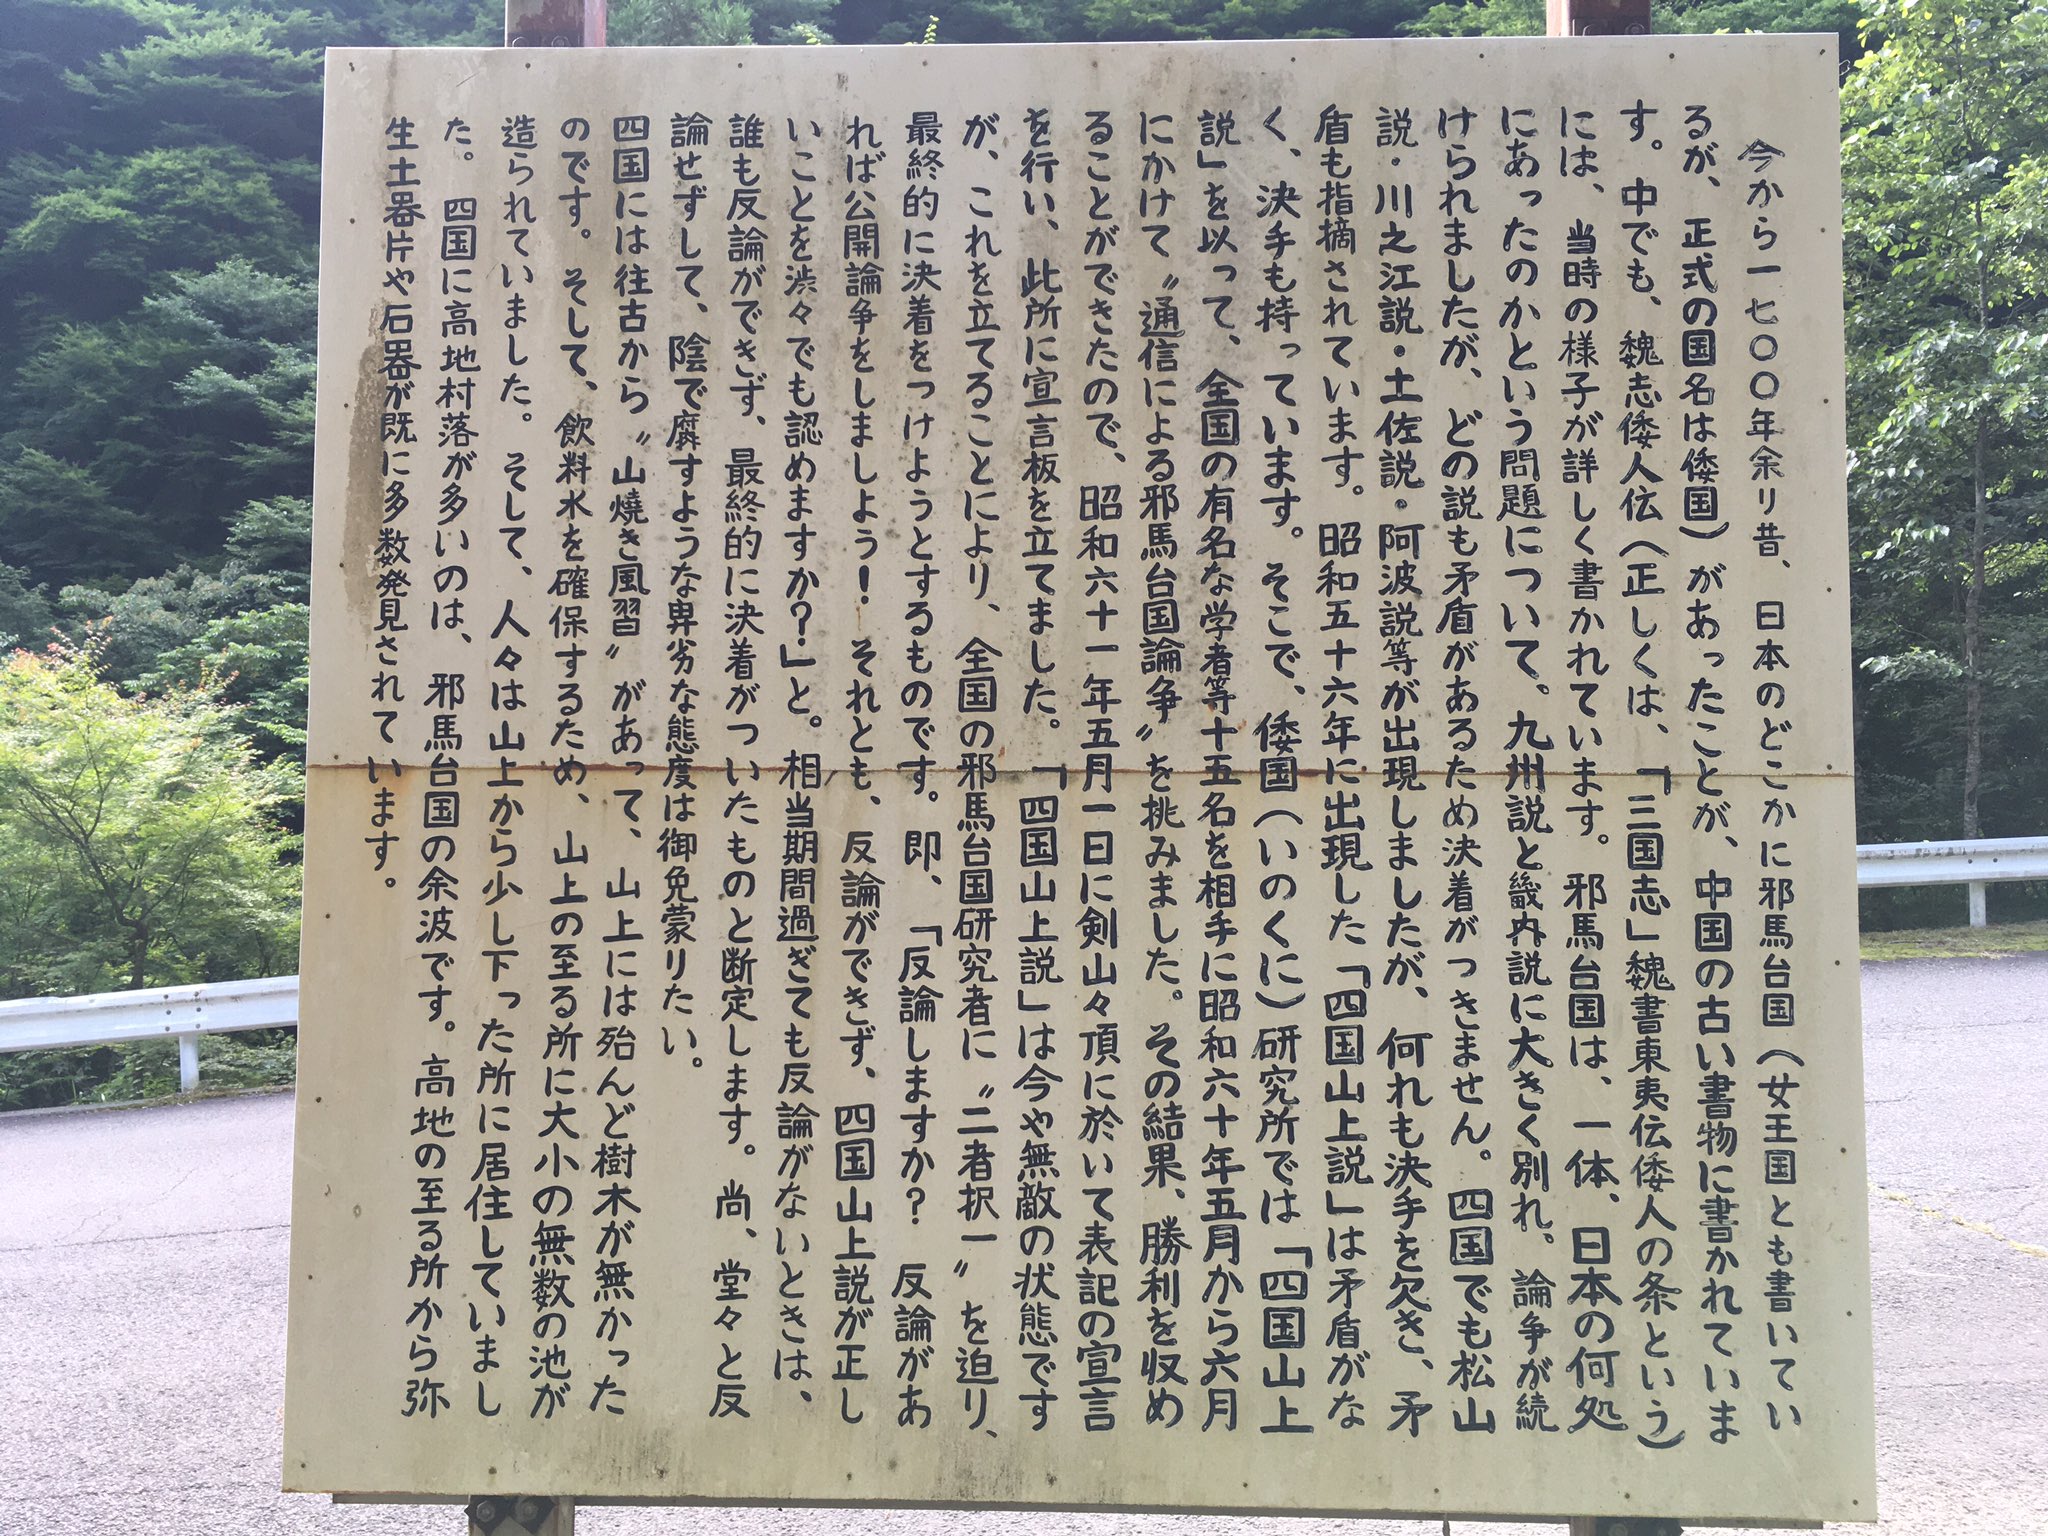 今から一七〇〇年余り昔、日本のどこかに邪馬台国(女王国とも書いてい
るが、正式の国名は倭国)があったことが、中国の古い書物に書かれていま
す。中でも、魏志倭人伝(正しくは、「三国志」魏書東夷伝倭人の条という)
には、当時の様子が詳しく書かれています。邪馬台国は、一体、日本の何処
にあったのかという問題について。九州説と畿内説に大きく別れ。論争が続
けられましたが、どの説も矛盾があるため決着がつきません。四国でも松山
説・川之江説・土佐説・阿波説等が出現しましたが、何れも決手を欠き、矛
盾も指摘されています。昭和五十六年に出現した「四国山上説」は矛盾がな
く、決手も持っています。そこで、倭国(いのくに)研究所では「四国山上
説」を以って、全国の有名な学者等十五名を相手に昭和六十年五月から六月
にかけて〝通信による邪馬台国論争〟を挑みました。その結果、勝利を収め
ることができたので、昭和六十一年五月一日に剣山々頂に於いて表記の宣言
を行い、此所に宣言板を立てました。「四国山上説」は今や無敵の状態です
が、これを立てることにより、全国の邪馬台国研究者に〝二者択一〟を迫り、
最終的に決着をつけようとするものです。即、「反論しますか?反論があ
れば公開論争をしましよう!それとも、反論ができず、四国山上説が正し
いことを渋々でも認めますか?」と。相当期間過ぎても反論がないときは、
誰も反論ができず、最終的に決着がついたものと断定します。尚、堂々と反
論せずして、陰で腐すような卑劣な態度は御免蒙りたい。
四国には往古から〝山焼き風習〟があって、山上には殆んど樹木が無かった
のです。そして、飲料水を確保するため、山上の至る所に大小の無数の池が
造られていました。そして、人々は山上から少し下った所に居住していまし
た。四国に高地村落が多いのは、邪馬台国の余波です。高地の至る所から弥
生土器片や石器が既に多数発見されています。